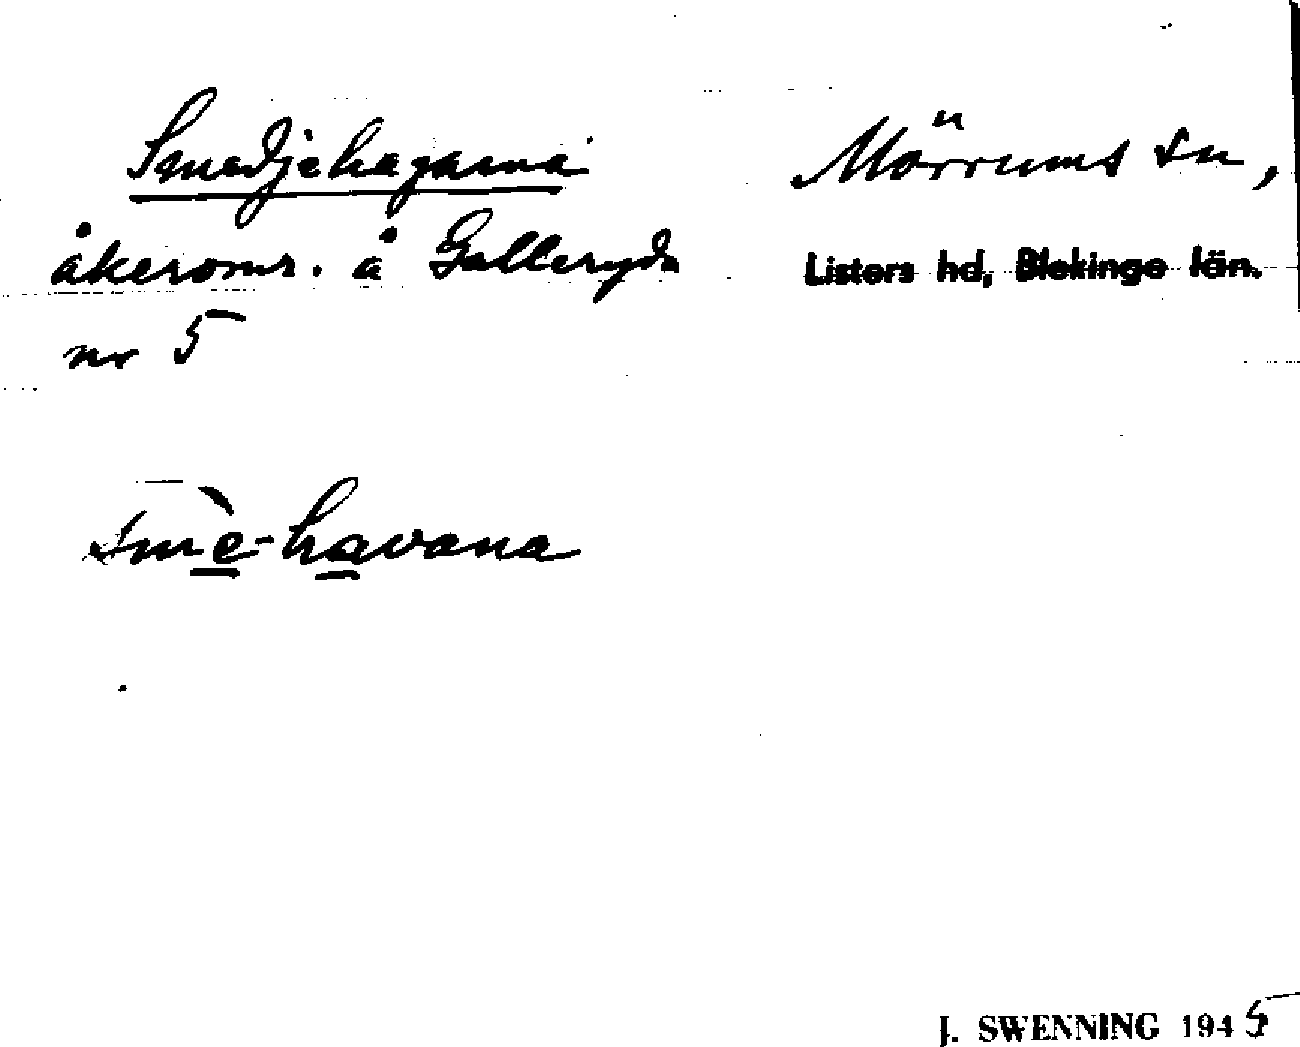 Smedjehagarna
åkeromr. å Galleryda
nr 5
Mörrums sn,
Listers hd, Blekinge län.
smè-havana
J. SWENNING 1945